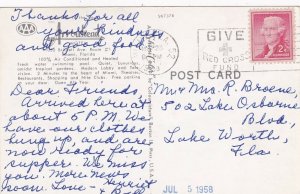 567376
Thanks for all
your kindness
and good food.
100% Air Conditioned and Heated
Dear Friends,
Arrived here at
about 5 P.M. We
have our clothes
hung up, and are
now ready for
supper. We miss
you. More news
soon. Love - Harriet
GIVE
RED CROSS
FUND
2¢
POST CARD
Mr & Mrs R. Broene,
502 Lake Osborne
Blvd,
Lake Worth,
Fla.
JUL 5 1958